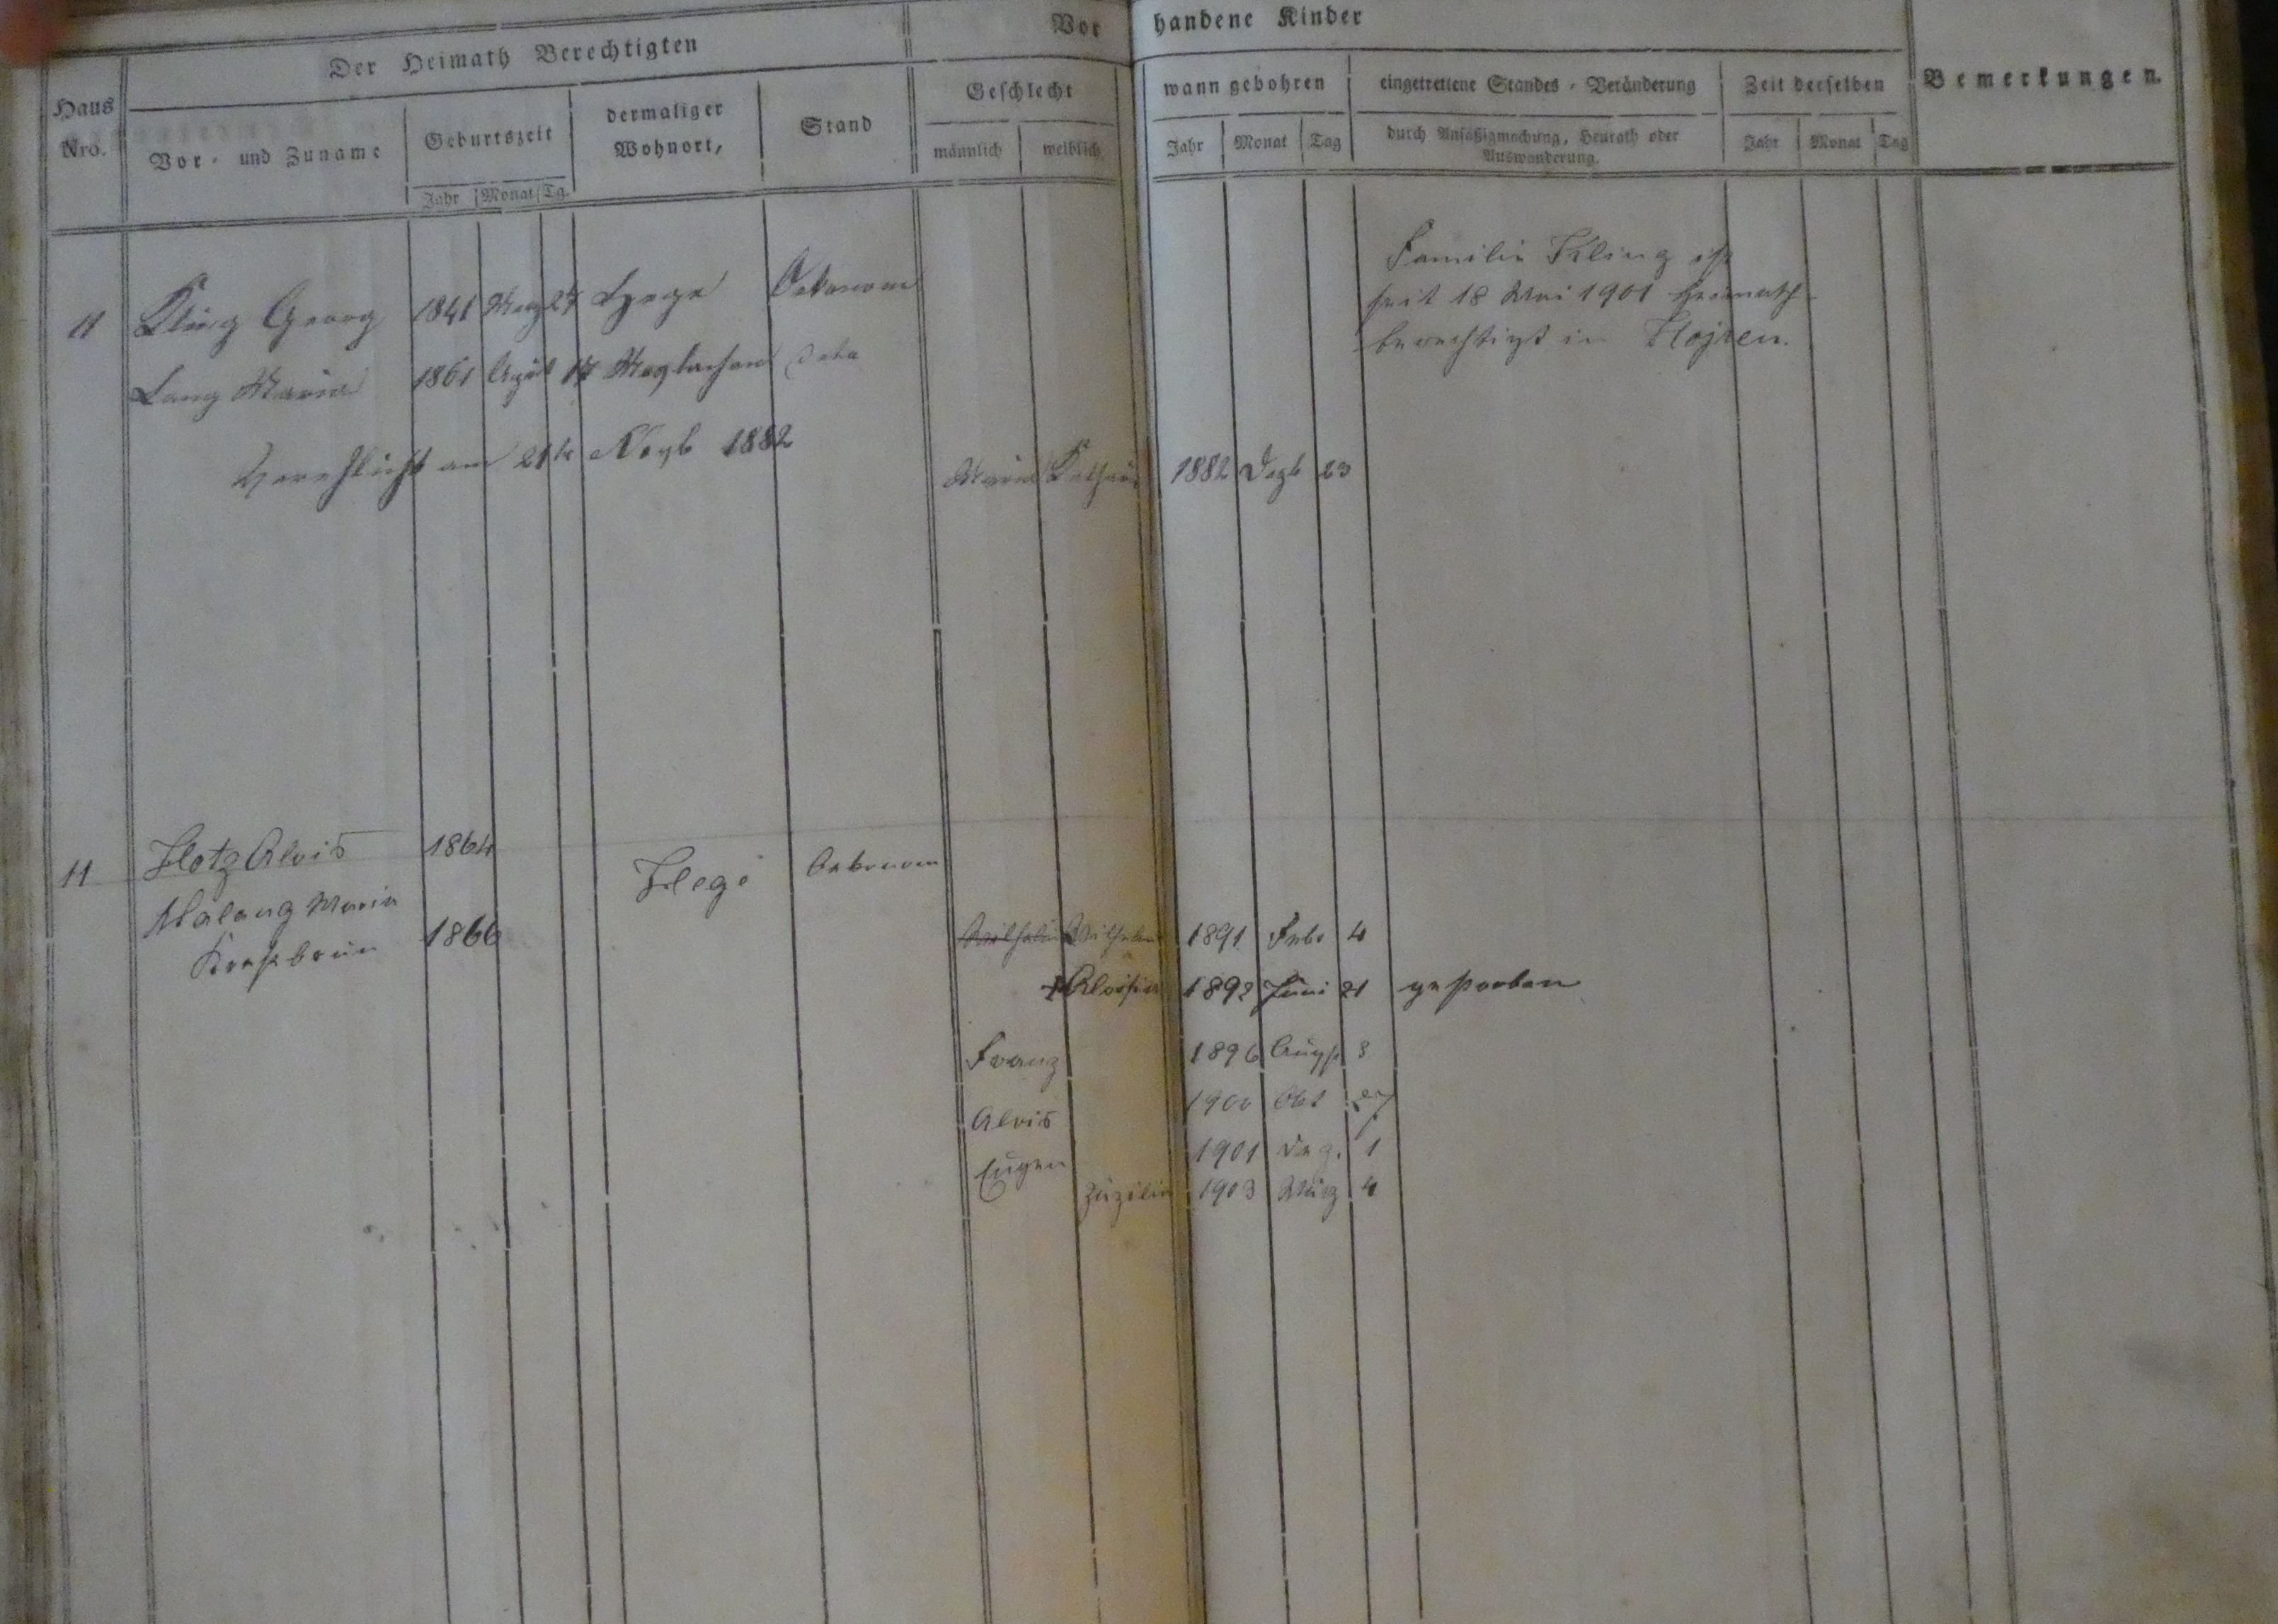 Der Heimath Berechtigten
Vorhandene Kinder
Haus Nro.
Vor- und Zuname
Geburtszeit
Jahr Monat Tg.
dermaliger Wohnort,
Stand
Geschlecht
männlich weiblich
wann gebohren
Jahr Monat Tag
eingetrettene Standes-Veränderung
durch Ansäßigmachung, Heurath oder
Auswanderung.
Zeit derselben
Jahr Monat Tag
Bemerkungen.
11 Kling Georg 1841 März 27 Hege Oekonom
Familie Kling ist
seit 18 Mai 1901 heimath-
berechtigt in Hojren.
Lang Maria 1861 April 17 deto
Verehlicht am 21te Novb 1882
Maria Kathari 1882 Dezb 23
11 Hotz Alois 1864 Hege Oekonom
Malang Maria
1866
Wilhelm Wilhelm 1891 Febr 4
+ Aloisia 1892 Juni 21 gestorben
Franz 1896 Augst 3
Alois 1900 Okt 27
Eugen 1901 Dez. 1
Zäzilia 1903 März 4